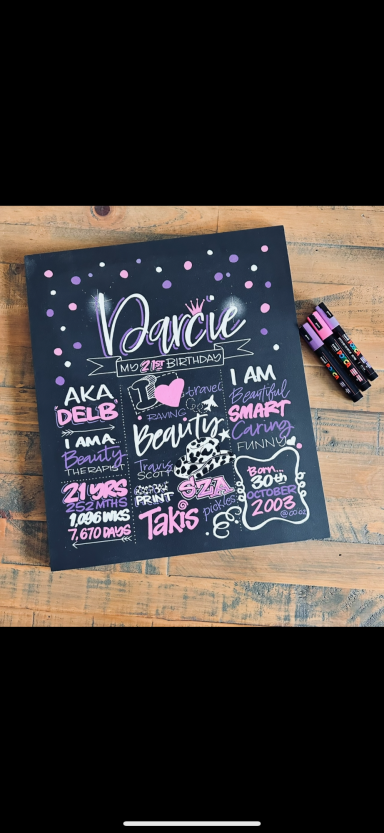 Darcie
MY 21ST BIRTHDAY
AKA
DELB
I AM A
Beauty
THERAPIST
21 YRS
252 MTHS
1,096 WKS
7,670 DAYS
I
travel
RAVING
Beauty
Travis
SCOTT
PRINT
SZA
Takis
pickles
I AM
Beautiful
SMART
Caring
FUNNY
Born...
30th
OCTOBER
2003